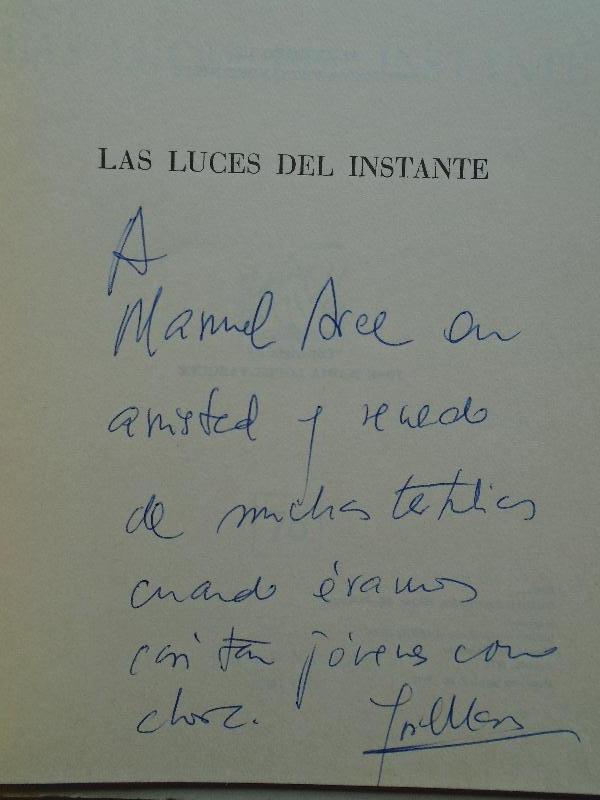 LAS LUCES DEL INSTANTE
A
Manuel Arce con
amistad y recuerdo
de muchas tertulias
cuando éramos
casi tan jóvenes como
ahora.